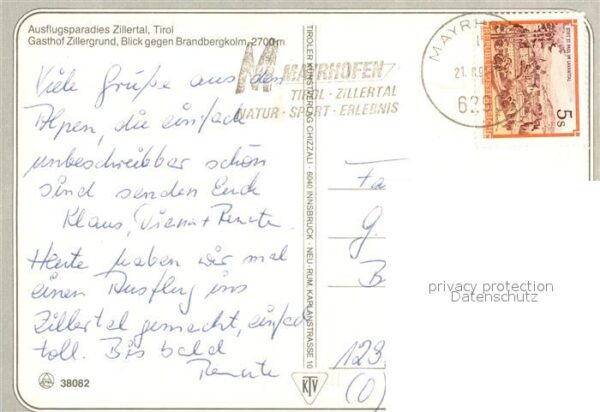 Ausflugsparadies Zillertal, Tirol
Gasthof Zillergrund, Blick gegen Brandbergkolm, 2700m
Viele Grüße aus den
Alpen, die einfach
unbeschreibbar schön
sind senden Euch
Klaus, + Renate.
Heute haben wir mal
einen Ausflug ins
Zillertal gemacht, einfach
toll. Bis bald
Renate
38082
TIROLER KUNSTVERLAG CHIZZALI · 6040 INNSBRUCK - NEU-RUM, KAPLANSTRASSE 10
KTV
M MAYRHOFEN
TIROL · ZILLERTAL
NATUR · SPORT · ERLEBNIS
MAYRH
629
5 S
Fa
G.
B
123
(0)
privacy protection
Datenschutz